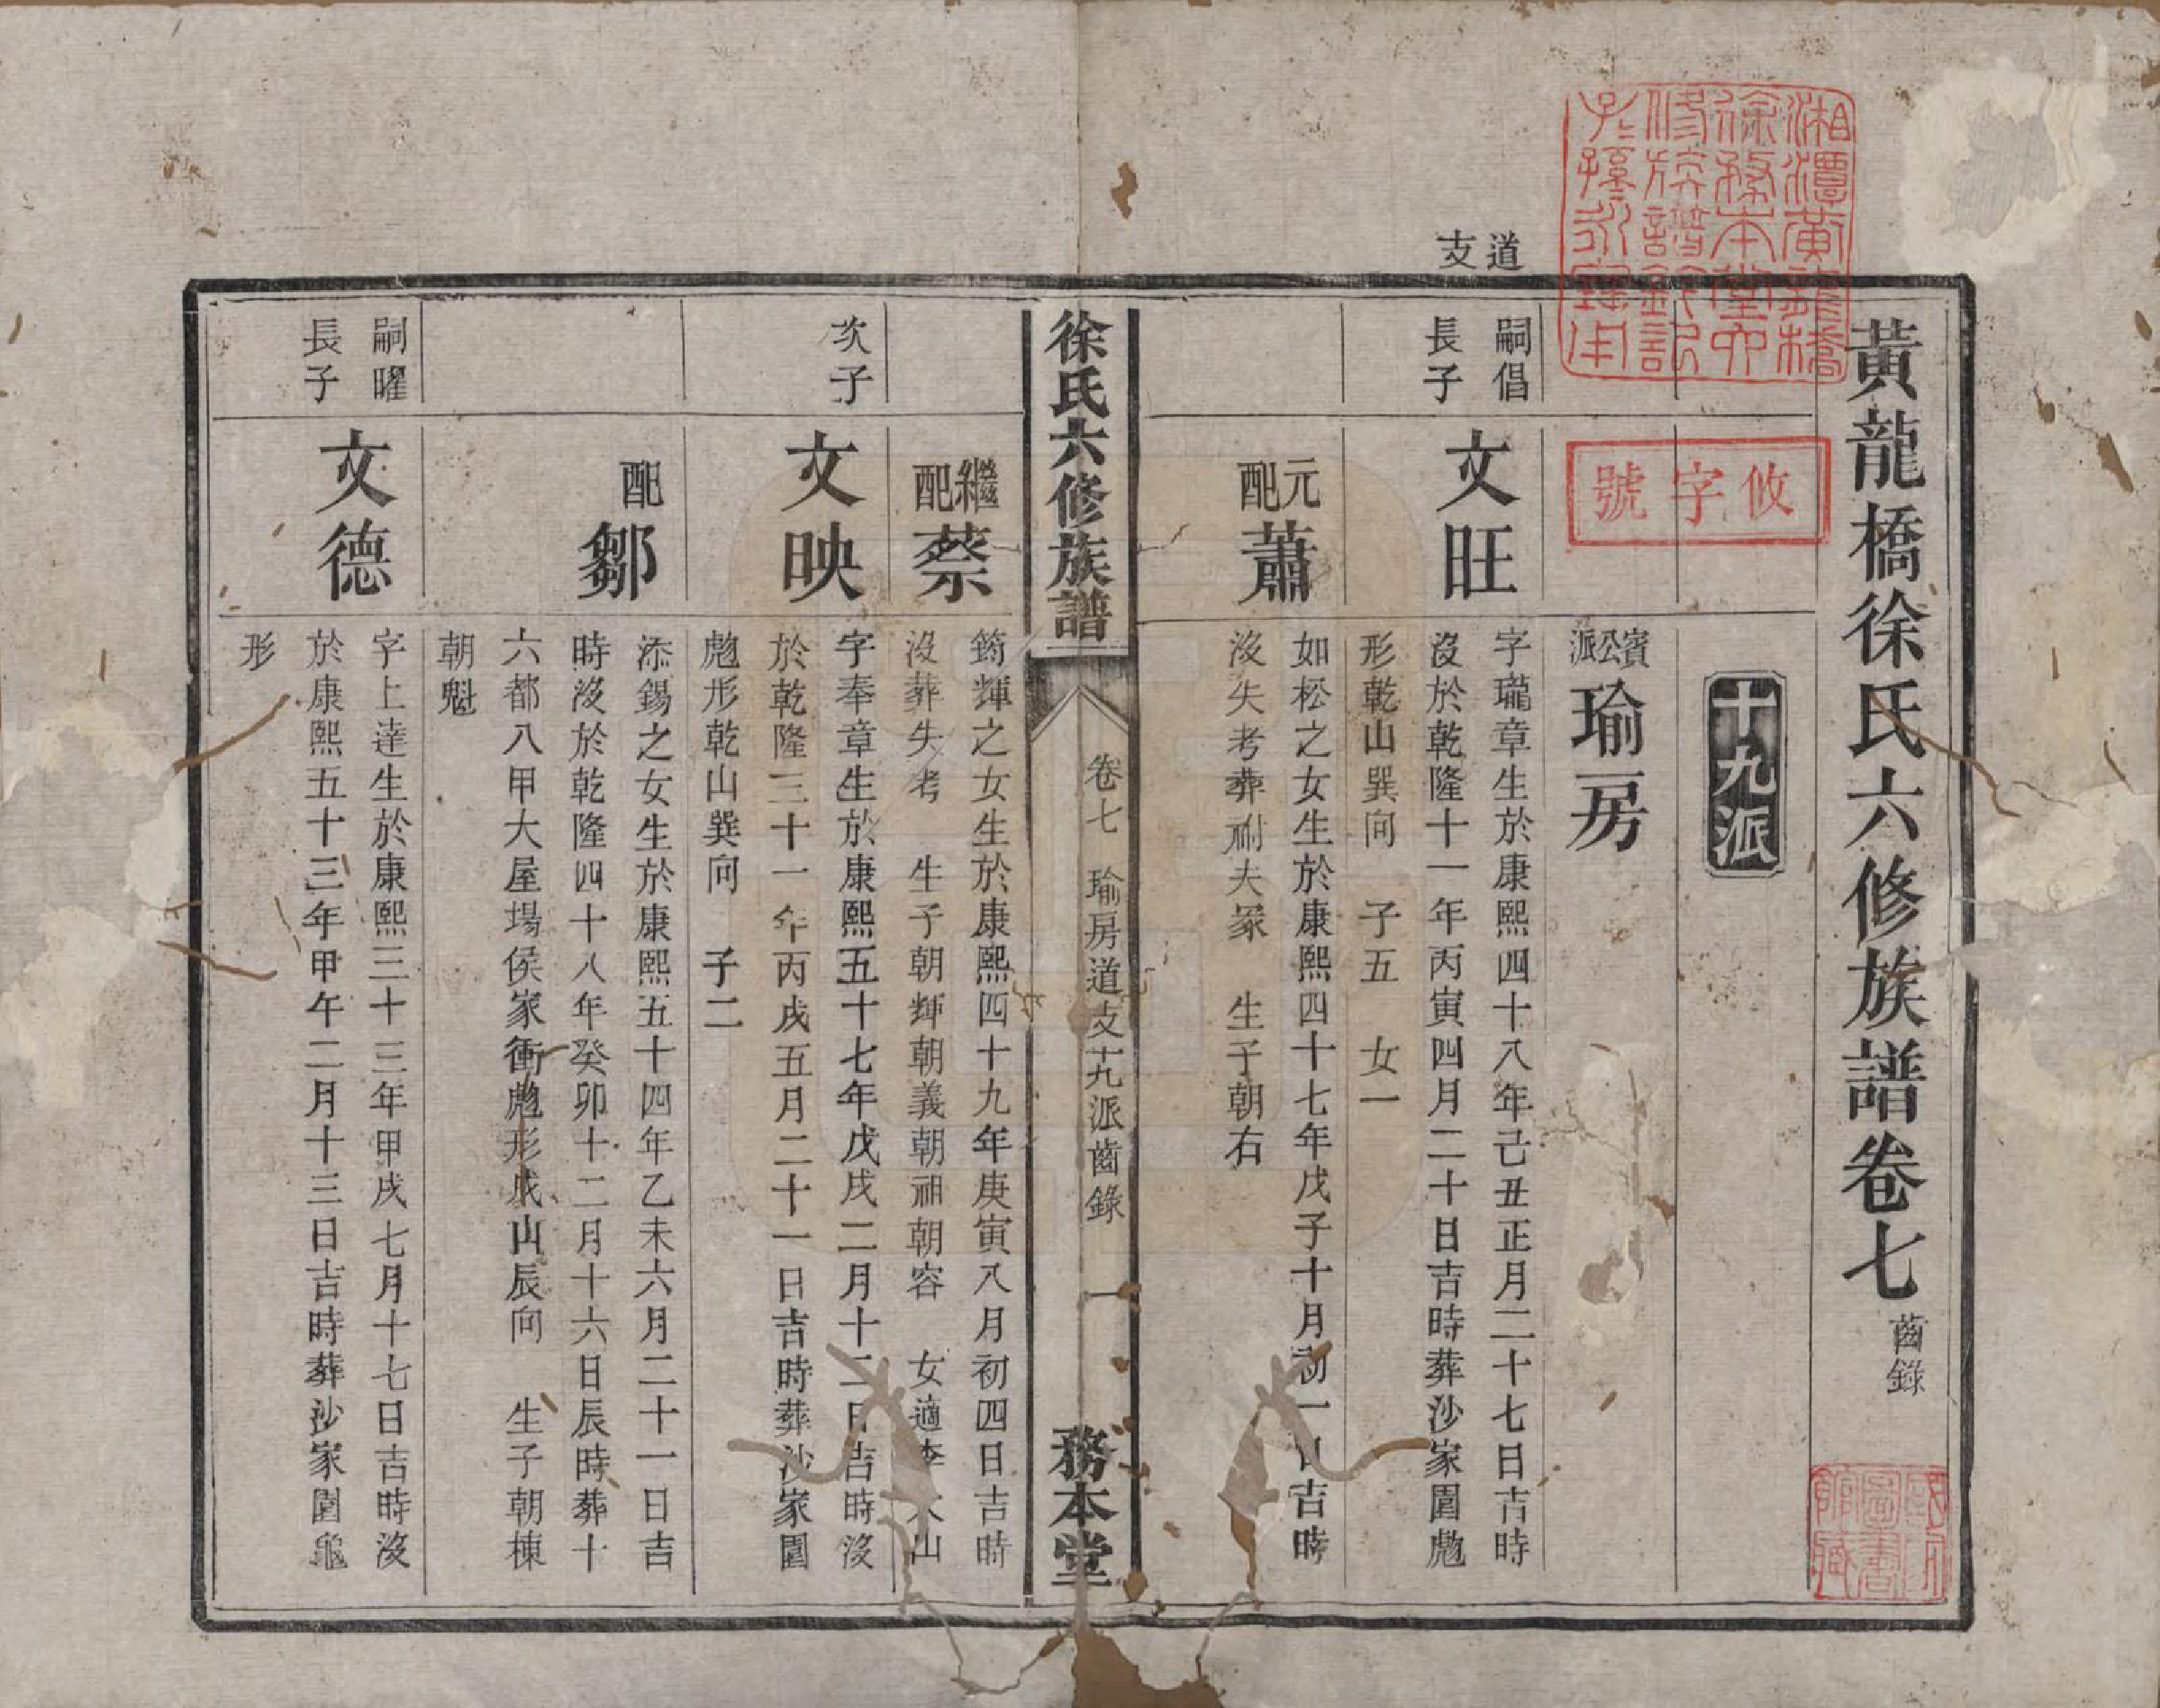 黃龍橋徐氏六修族譜卷七 齒錄
十九派
賓公派 瑜房
道支
嗣倡長子
文旺
字瓏章生於康熙四十八年己丑正月二十七日吉時
沒於乾隆十一年丙寅四月二十日吉時葬沙家園虺
形乾山巽向 子五 女一
元配 蕭
如松之女生於康熙四十七年戊子十月初一日吉時
沒失考葬祔夫冢 生子朝右
徐氏六修族譜 卷七 瑜房道支十九派齒錄 一 務本堂
繼配 蔡
筠輝之女生於康熙四十九年庚寅八月初四日吉時
沒葬失考 生子朝輝朝義朝祖朝容 女適李 山
次子
文映
字奉章生於康熙五十七年戊戌二月十二日吉時沒
於乾隆三十一年丙戌五月二十一日吉時葬沙家園
虺形乾山巽向 子二
配 鄒
添錫之女生於康熙五十四年乙未六月二十一日吉
時沒於乾隆四十八年癸卯十二月十六日辰時葬十
六都八甲大屋場侯家衝虺形戌山辰向 生子朝棟
朝魁
嗣曜長子
文德
字上達生於康熙三十三年甲戌七月十七日吉時沒
於康熙五十三年甲午二月十三日吉時葬沙家園龜
形
湘潭黃龍橋
徐務本堂六
修族譜鈐記
子孫永寶用
攸字號